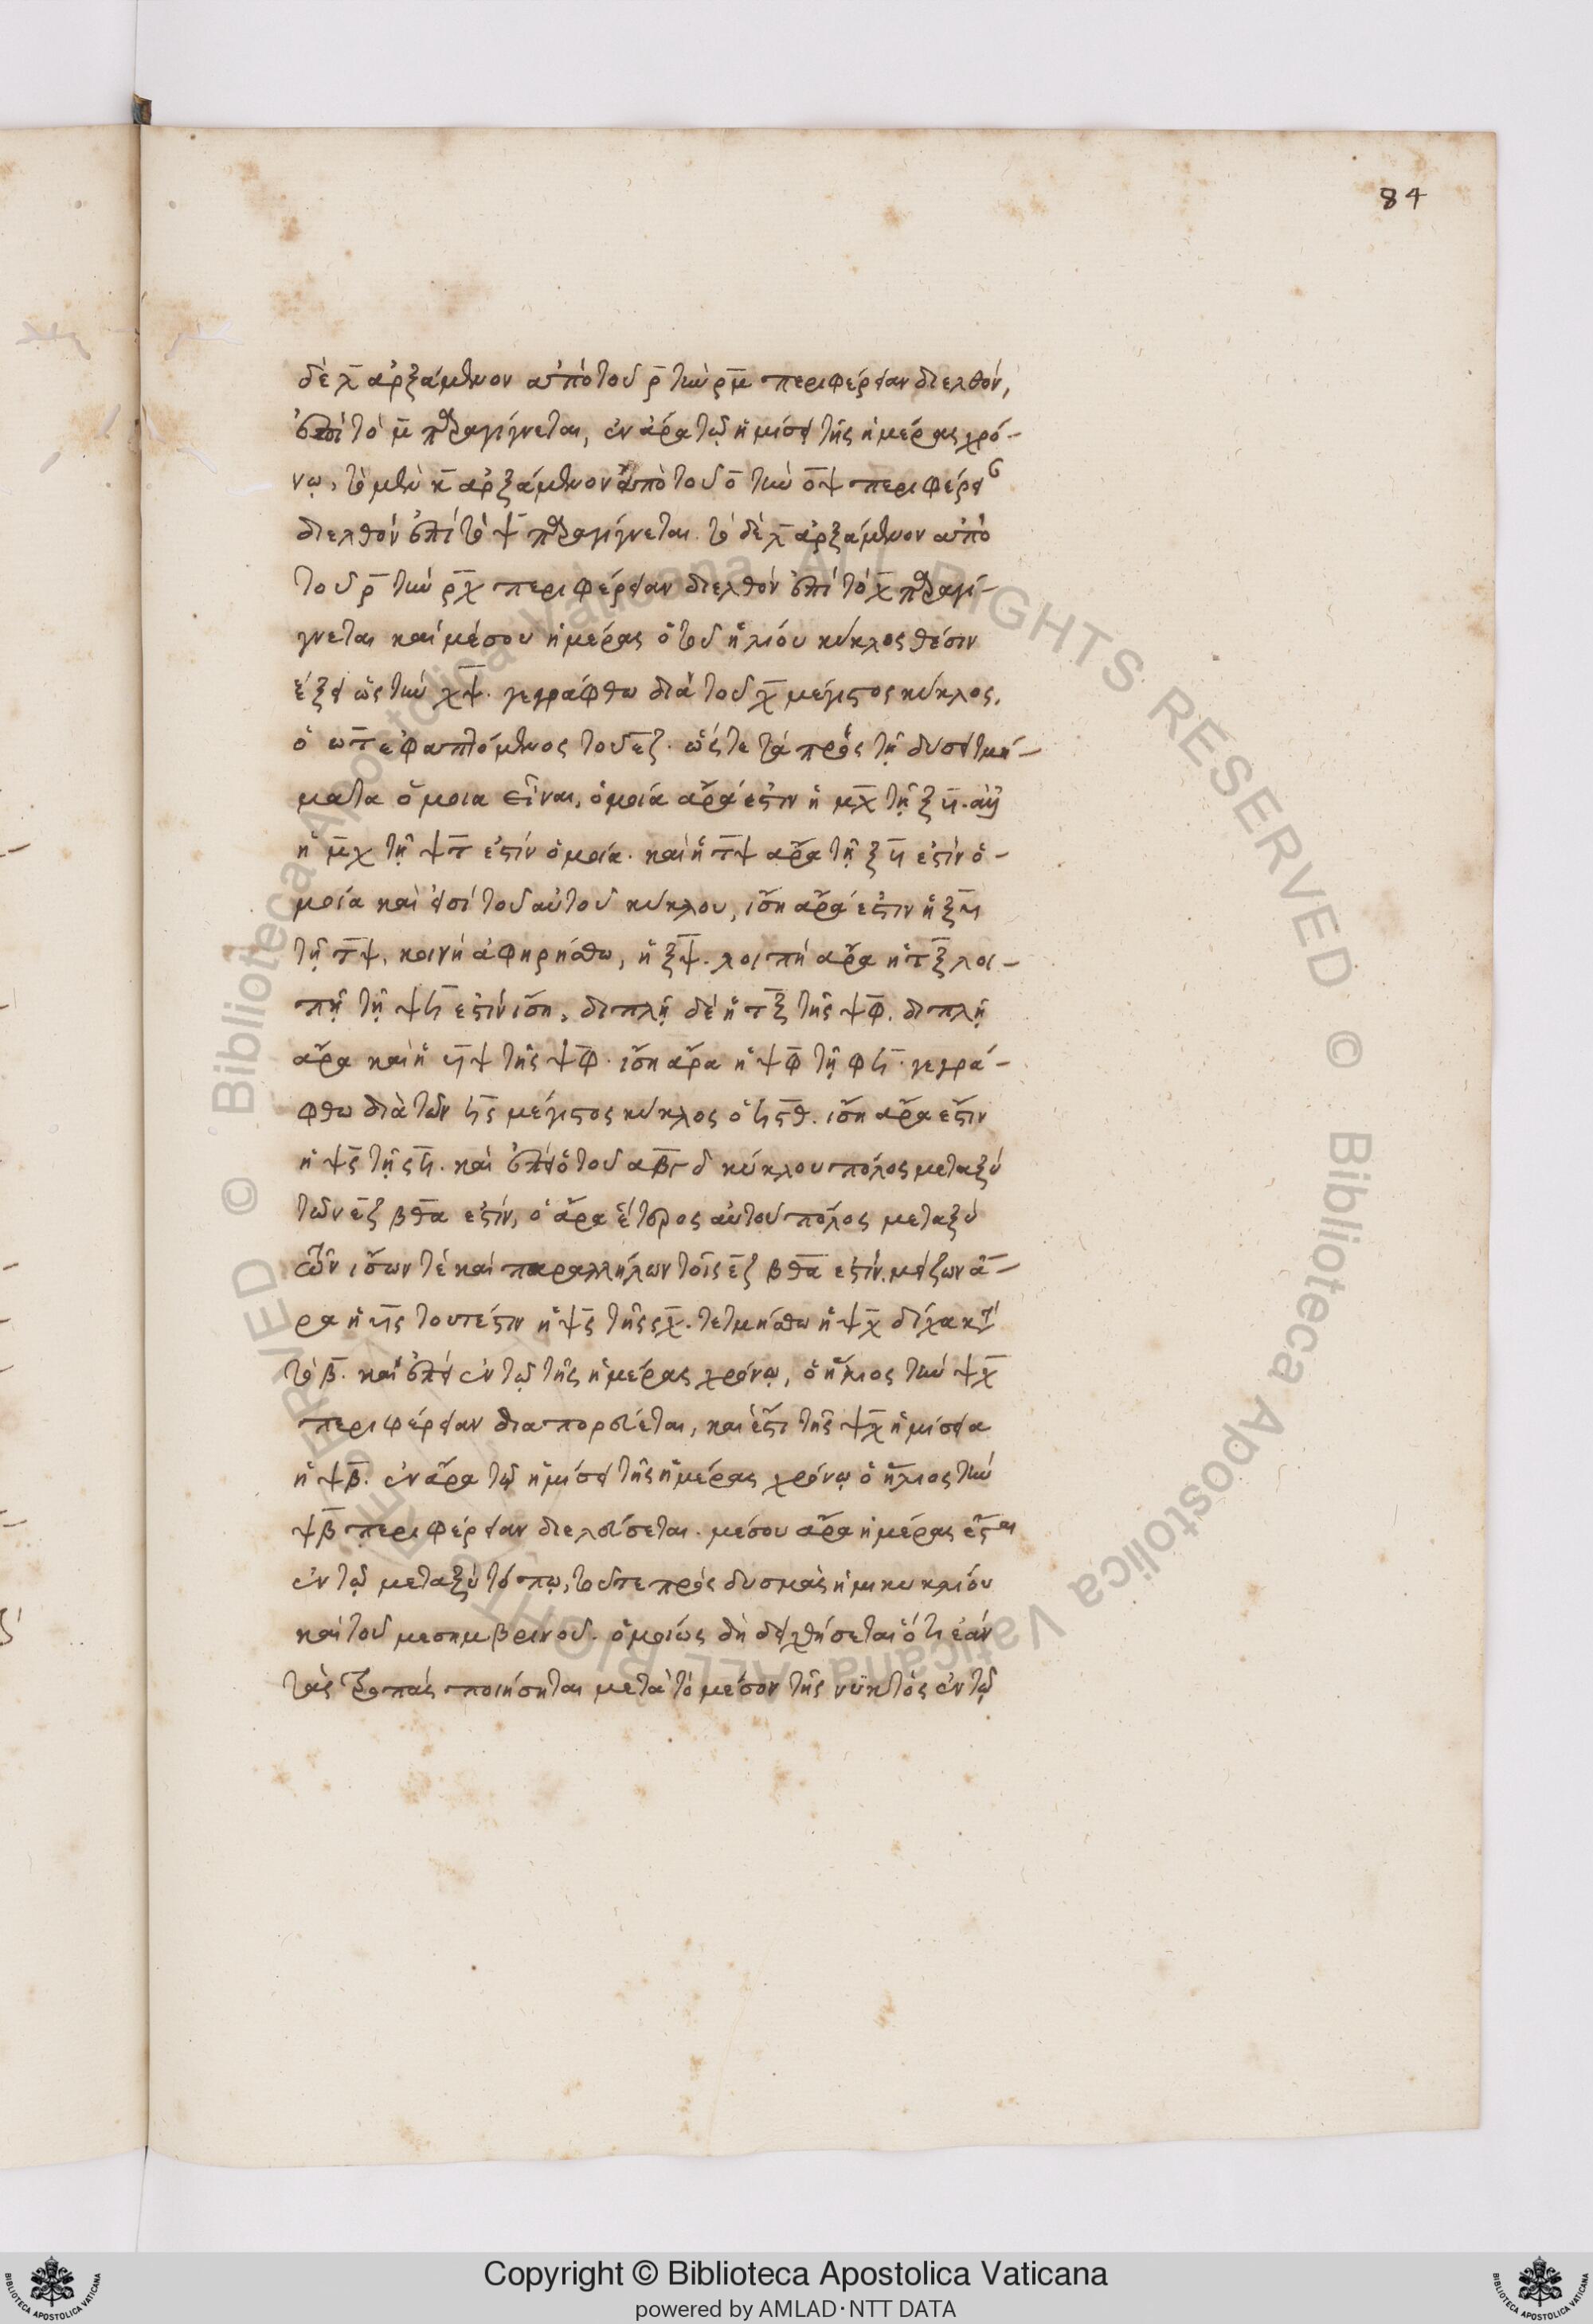 84
δὲ χ̄ ἀρξάμενον ἀπὸ τοῦ ρ̄ τὴν ρ̄μ̄ περιφέρειαν διελθόν,
ἐπὶ τὸ μ̄ παραγίγνεται, ἐν ἄρα τῷ ἡμίσει τῆς ἡμέρας χρό-
νῳ, τὸ μὲν κ̄ ἀρξάμενον ἀπὸ τοῦ ο̄ τὴν ο̄ψ περιφέρει
διελθόν ἐπὶ τὸ ψ̄ παραγίγνεται. τὸ δὲ χ̄ ἀρξάμενον ἀπὸ
τοῦ ρ̄ τὴν ρ̄χ̄ περιφέρειαν διελθόν ἐπὶ τὸ χ̄ παραγί-
γνεται καὶ μέσου ἡμέρας ὁ τοῦ ἡλίου κύκλος θέσιν
ἕξει ὡς τὴν χψ̄. γεγράφθω διὰ τοῦ χ̄ μέγιστος κύκλος,
ὁ ωτ̄ εφαπτόμενος τοῦ εζ. ὥστε τὰ πρὸς τῇ δύσει τμή-
ματα ὅμοια εἶναι, ὁμοία ἄρα ἐστιν ἡ μχ̄ τῇ ξη̄.
ἡ μ̄χ τῇ ψτ̄ ἐστίν ὁμοία. καὶ ἡ τ̄ψ ἄρα τῇ ξη̄ ἐστίν ὁ-
μοία καὶ εἰσὶ τοῦ αὐτοῦ κύκλου, ἴση ἄρα ἐστιν ἡ ξη̄
τῇ τ̄ψ, κοινὴ ἀφῃρήσθω, ἡ ξψ̄. λοιπὴ ἄρα ἡ τξ̄ λοι-
πῇ τῇ ψη̄ ἐστίν ἴση, διπλῆ δὲ ἡ τξ̄ τῆς ψφ̄. διπλῆ
ἄρα καὶ ἡ η̄ψ τῆς ψφ̄. ἴση ἄρα ἡ ψφ̄ τῇ φη̄. γεγρά-
φθω διὰ τῶν ηϛ̄ μέγιστος κύκλος ὁ ηϛ̄θ. ἴση ἄρα ἐστιν
ἡ ψϛ̄ τῇ ϛη̄. καὶ ἐπεὶ ὁ τοῦ αβ̄γδ κύκλου πόλος μεταξὺ
τῶν εζ̄ βθ̄α ἐστίν, ὁ ἄρα ἕτερος αὐτοῦ πόλος μεταξὺ
τῶν ἴσων τὲ καὶ παραλλήλων τοῖς εζ̄ βθ̄α ἐστίν. μείζων ἄ-
ρα ἡ ηϛ̄ τουτέστιν ἡ ψϛ̄ τῆς ϛχ̄. τετμήσθω ἡ ψχ̄ δίχα κτ
τὸ β̄. καὶ ἐπεὶ ἐν τῷ τῆς ἡμέρας χρόνῳ, ὁ ἥλιος τὴν ψχ̄
περιφέρειαν διαπορεύεται, καὶ ἔστι τῆς ψχ̄ ἡμίσεια
ἡ ψβ̄. ἐν ἄρα τῷ ἡμίσει τῆς ἡμέρας χρόνῳ ὁ ἥλιος τὴν
ψβ̄ περιφέρειαν διελεύσεται. μέσου ἄρα ἡμέρας ἔσται
ἐν τῷ μεταξὺ τόπῳ, τοῦτε πρὸς δυσμὰς ἡμικυκλίου
καὶ τοῦ μεσημβρινοῦ. ὁμοίως δὴ δειχθήσεται ὅτι ἐάν
τὰς τροπὰς ποιήσηται μετὰ τὸ μέσον τῆς νυκτὸς ἐν τῷ
© Biblioteca Apostolica Vaticana ALL RIGHTS RESERVED
© Biblioteca Apostolica Vaticana ALL RIGHTS RESERVED
Copyright © Biblioteca Apostolica Vaticana
powered by AMLAD·NTT DATA
BIBLIOTECA APOSTOLICA VATICANA
BIBLIOTECA APOSTOLICA VATICANA